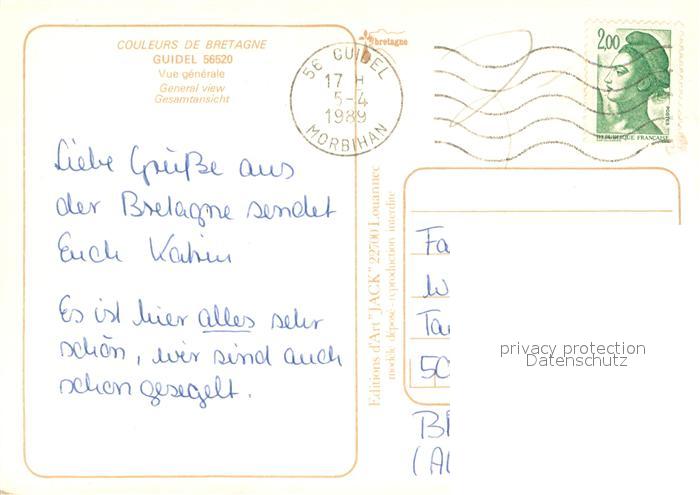 COULEURS DE BRETAGNE
GUIDEL 56520
Vue générale
General view
Gesamtansicht
bretagne
56 GUIDEL
17 H
5-4
1989
MORBIHAN
2,00
POSTES
REPUBLIQUE FRANÇAISE
Liebe Grüße aus
der Bretagne sendet
Euch Katrin
Es ist hier alles sehr
schön, wir sind auch
schon gesegelt.
Editions d'Art "JACK" 22700 Louannec
modèle déposé - reproduction interdite
Fa
w
Ta
50
privacy protection
Datenschutz